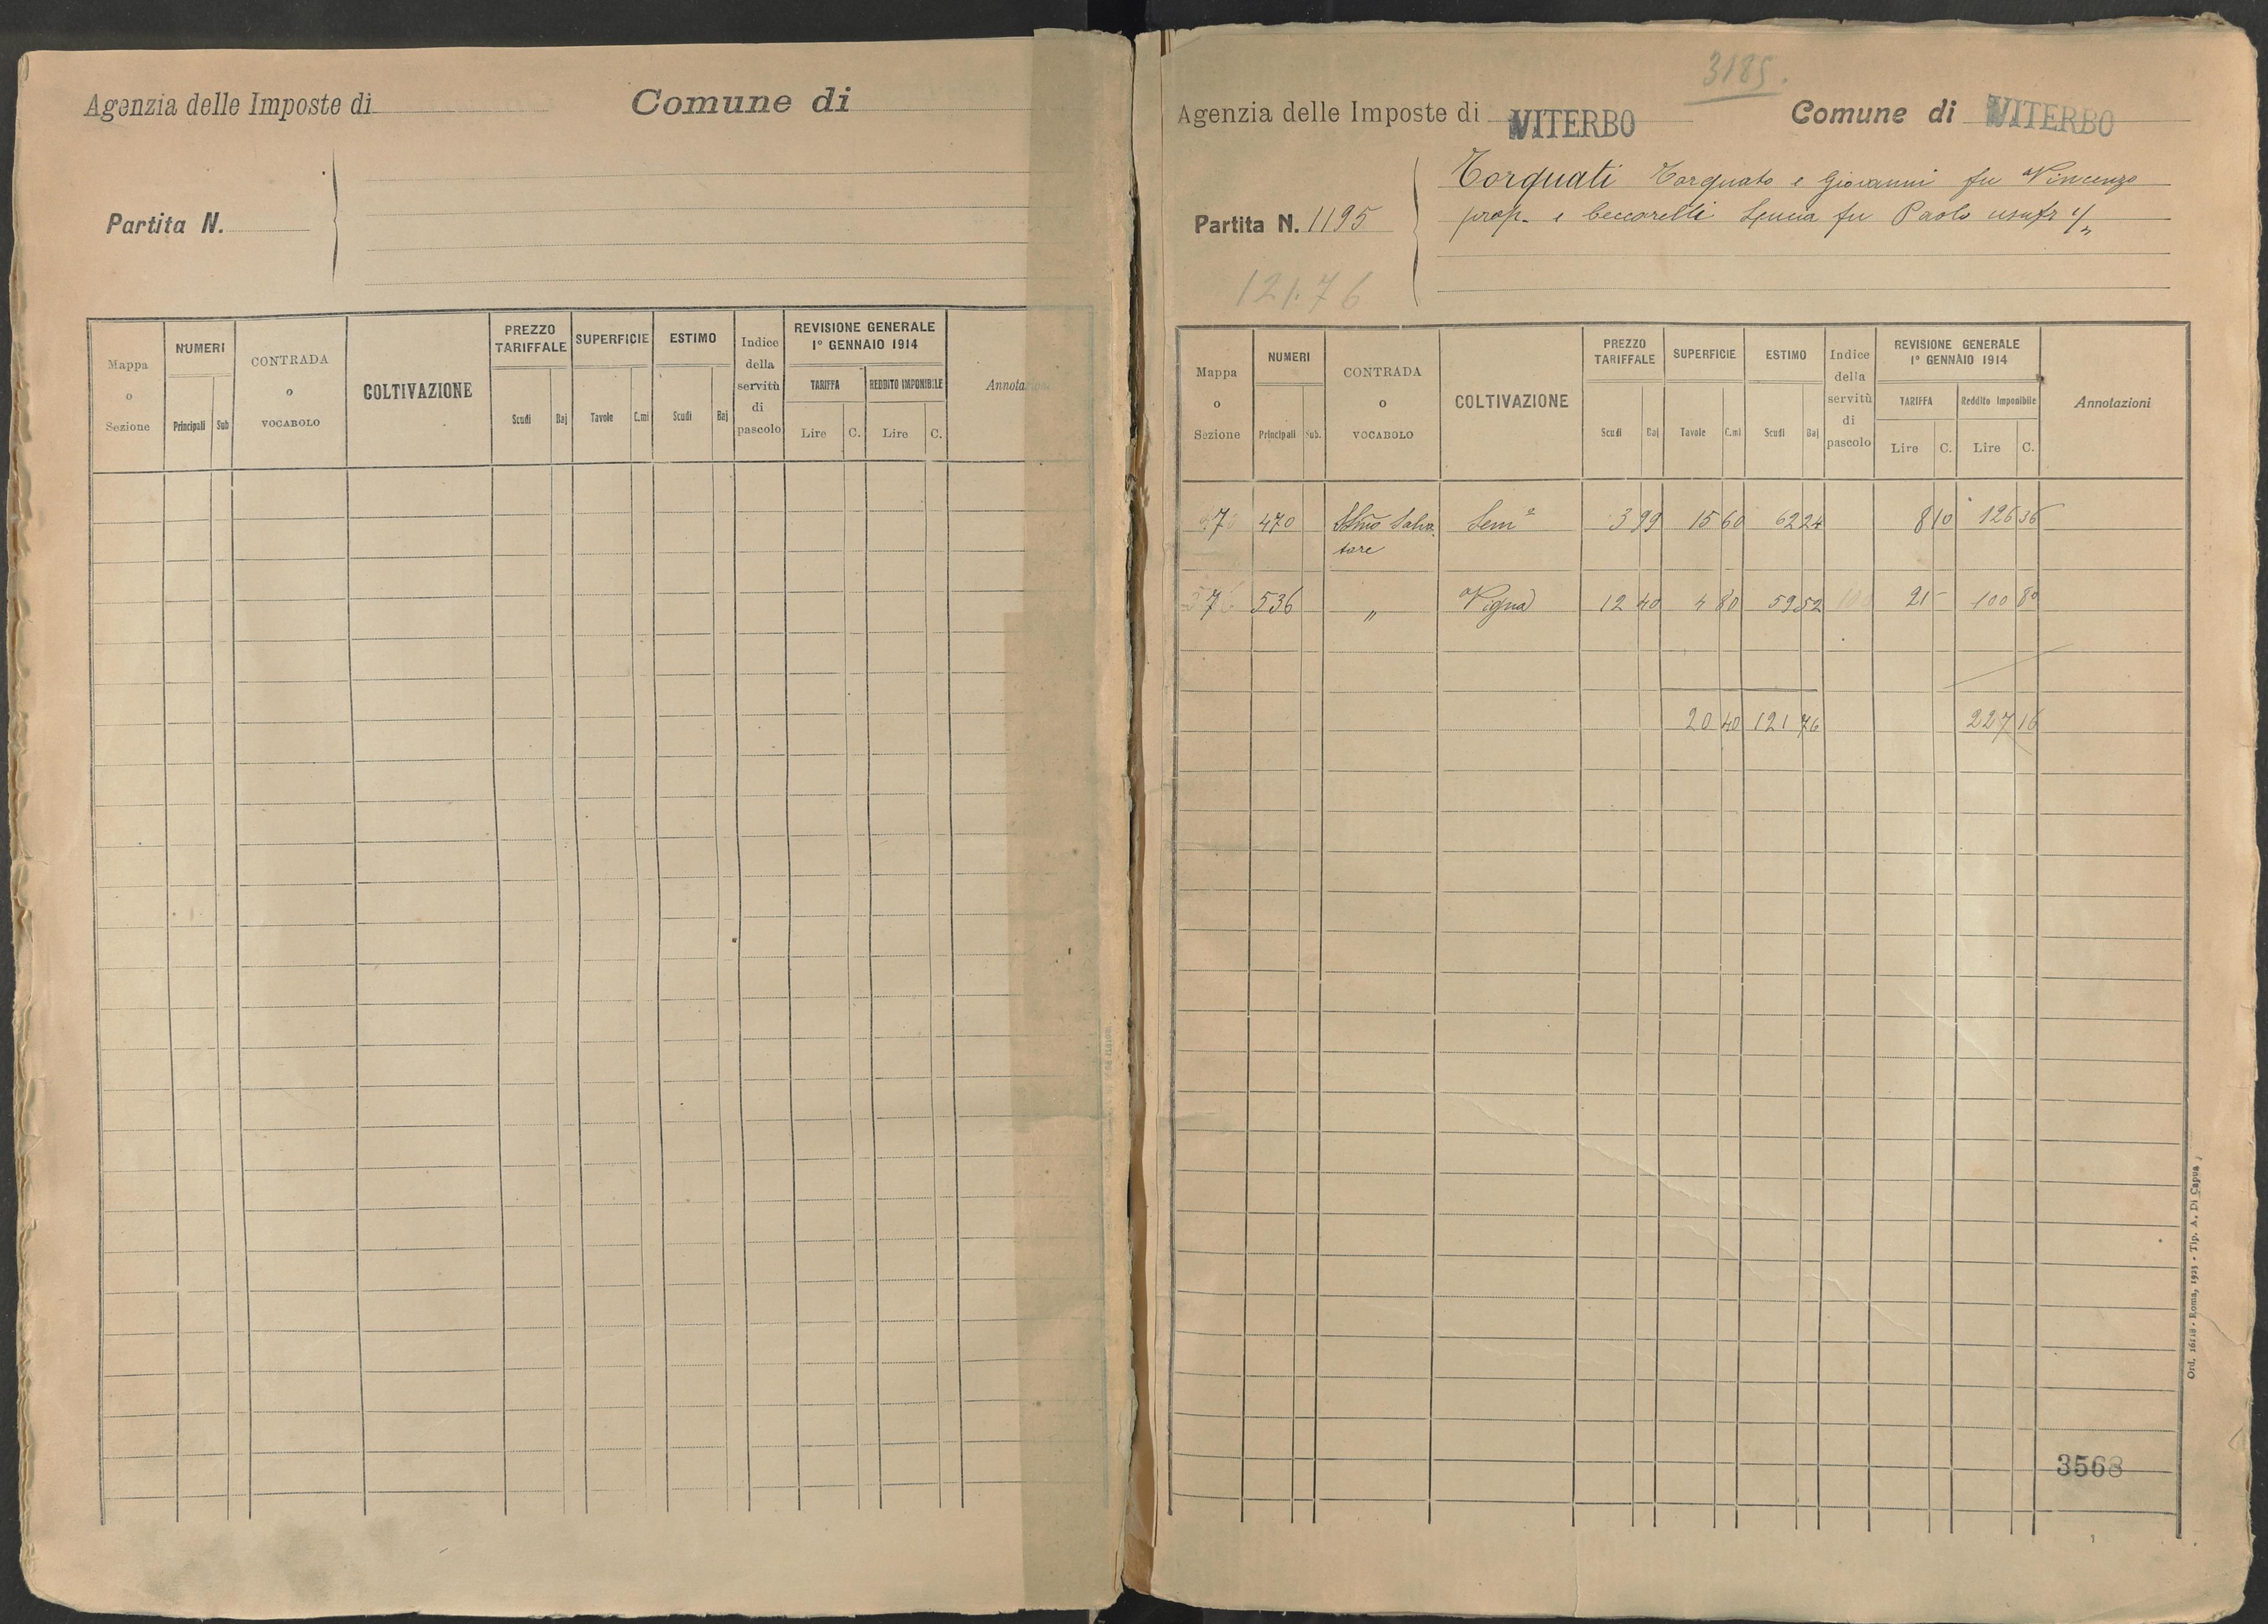 Agenzia delle Imposte di
Comune di
Partita N.
Mappa o Sezione
NUMERI
Principali
Sub
CONTRADA o VOCABOLO
COLTIVAZIONE
PREZZO TARIFFALE
Scudi
Baj
SUPERFICIE
Tavole
C.mi
ESTIMO
Scudi
Baj
Indice della servitù di pascolo
REVISIONE GENERALE
1º GENNAIO 1914
TARIFFA
REDDITO IMPONIBILE
Lire C. Lire C.
3185.
Agenzia delle Imposte di VITERBO
Comune di VITERBO
Torquati Torquato e Giovanni fu Vincenzo
Partita N. 1195
prop. e Ceccarelli Lucia fu Paolo usufr
121.76
Mappa o Sezione
NUMERI
Principali
Sub.
CONTRADA o VOCABOLO
COLTIVAZIONE
PREZZO TARIFFALE
Scudi
Baj
SUPERFICIE
Tavole
C.mi
ESTIMO
Scudi
Baj
Indice della servitù di pascolo
REVISIONE GENERALE
1º GENNAIO 1914
TARIFFA
Reddito Imponibile
Lire C. Lire C.
Annotazioni
470 SSmo Salva Sem 3 99 15 60 62 24 8 10 126 36
tore
536 " Vigna 12 40 4 80 59 52 21 - 100 80
20 40 121 76 227 16
3568
Ord. 16118 - Roma, 1923 - Tip. A. Di Capua